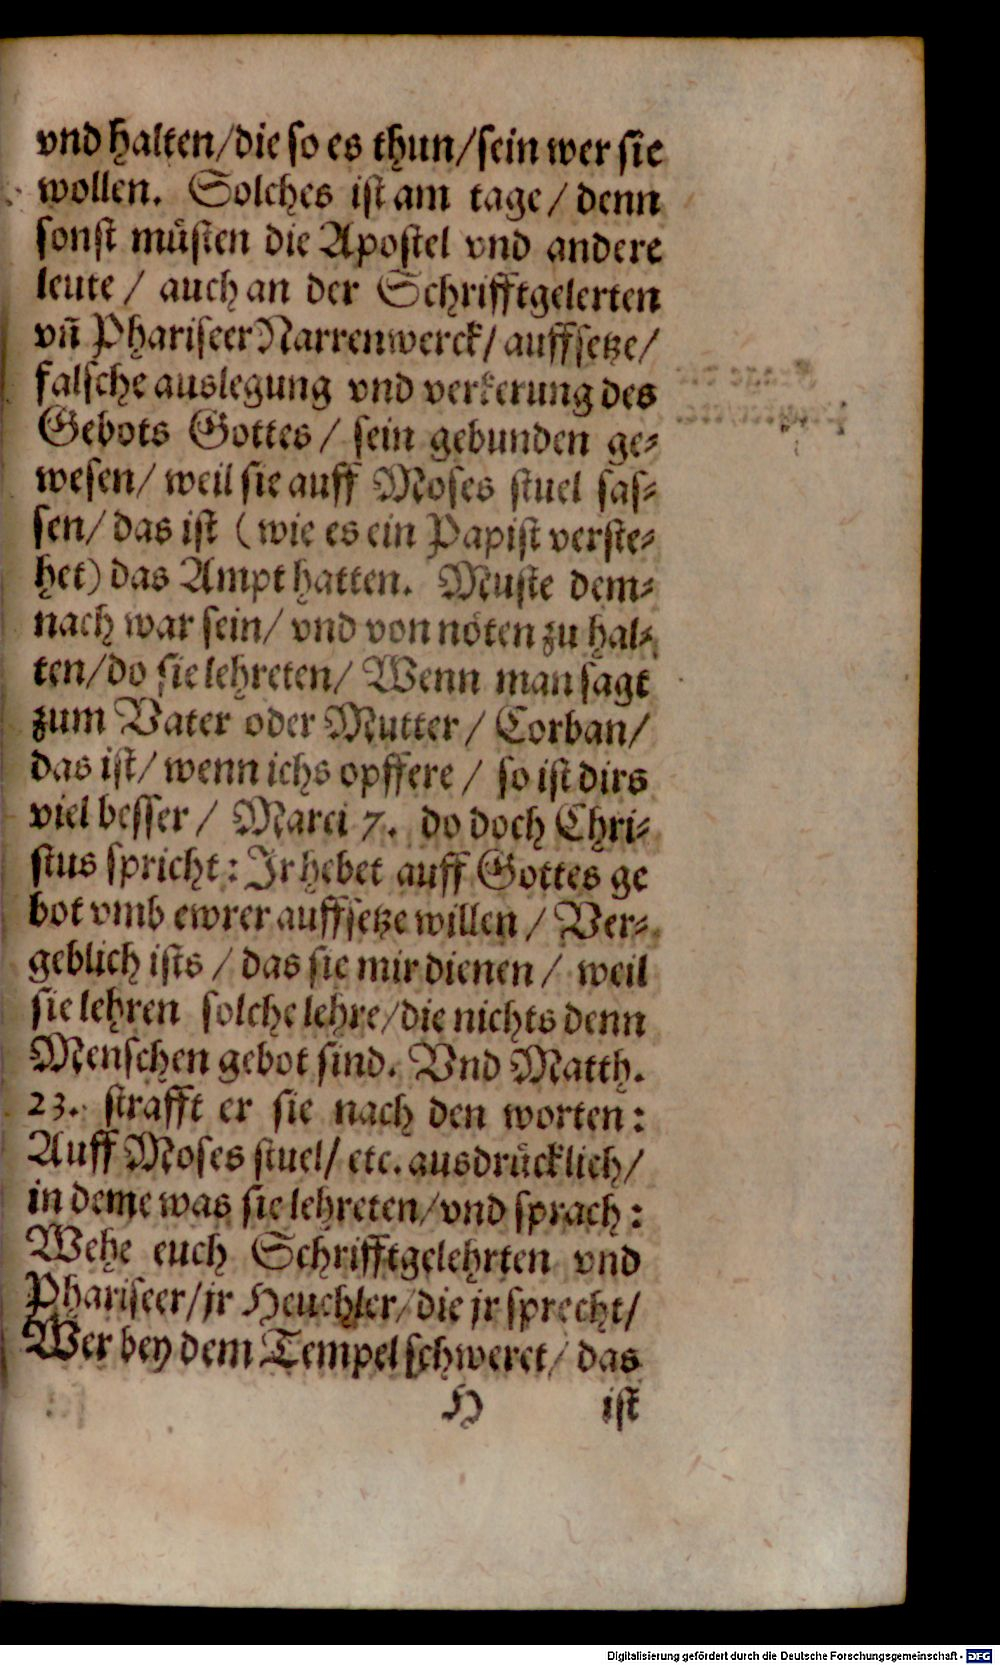 vnd halten/die so es thun/sein wer sie
wollen. Solches ist am tage/ denn
sonst müsten die Apostel vnd andere
leute/ auch an der Schrifftgelerten
vñ Phariseer Narrenwerck/ auffsetze/
falsche auslegung vnd verkerung des
Gebots Gottes/ sein gebunden ge-
wesen/ weil sie auff Moses stuel sas-
sen/ das ist (wie es ein Papist verste-
het) das Ampt hatten. Muste dem-
nach war sein/ vnd von nöten zu hal-
ten/do sie lehreten/ Wenn man sagt
zum Vater oder Mutter/ Corban/
das ist/ wenn ichs opffere/ so ist dirs
viel besser/ Marci 7. do doch Chri-
stus spricht: Jr hebet auff Gottes ge
bot vmb ewrer auffsetze willen/ Ver-
geblich ists/ das sie mir dienen/ weil
sie lehren solche lehre/die nichts denn
Menschen gebot sind. Vnd Matth.
23. strafft er sie nach den worten:
Auff Moses stuel/ etc. ausdrücklich/
in deme was sie lehreten/vnd sprach:
Wehe euch Schrifftgelehrten vnd
Phariseer/jr Heuchler/die jr sprecht/
Wer bey dem Tempel schweret/ das
H ist
Digitalisierung gefördert durch die Deutsche Forschungsgemeinschaft - DFG